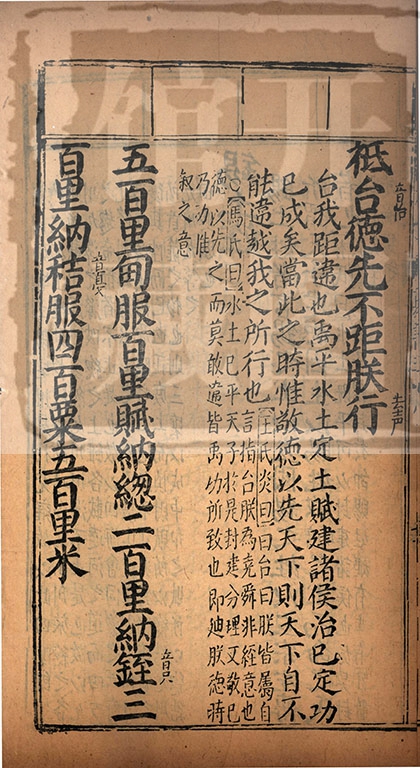 祗台德先不距朕行
音怡
去声
台我距違也禹平水土定土賦建諸侯治已定功
已成矣當此之時惟敬德以先天下則天下自不
能違越我之所行也
王氏炎曰曰台曰朕皆屬自
言指台朕為堯舜非經意也
○馮氏曰水土已平天子於是封建分理又敬已
德以先之而莫敢違皆禹功所致也即廸朕德時
乃功惟
叙之意
五百里甸服百里賦納緫二百里納銍三
音只
百里納秸服四百粟五百里米